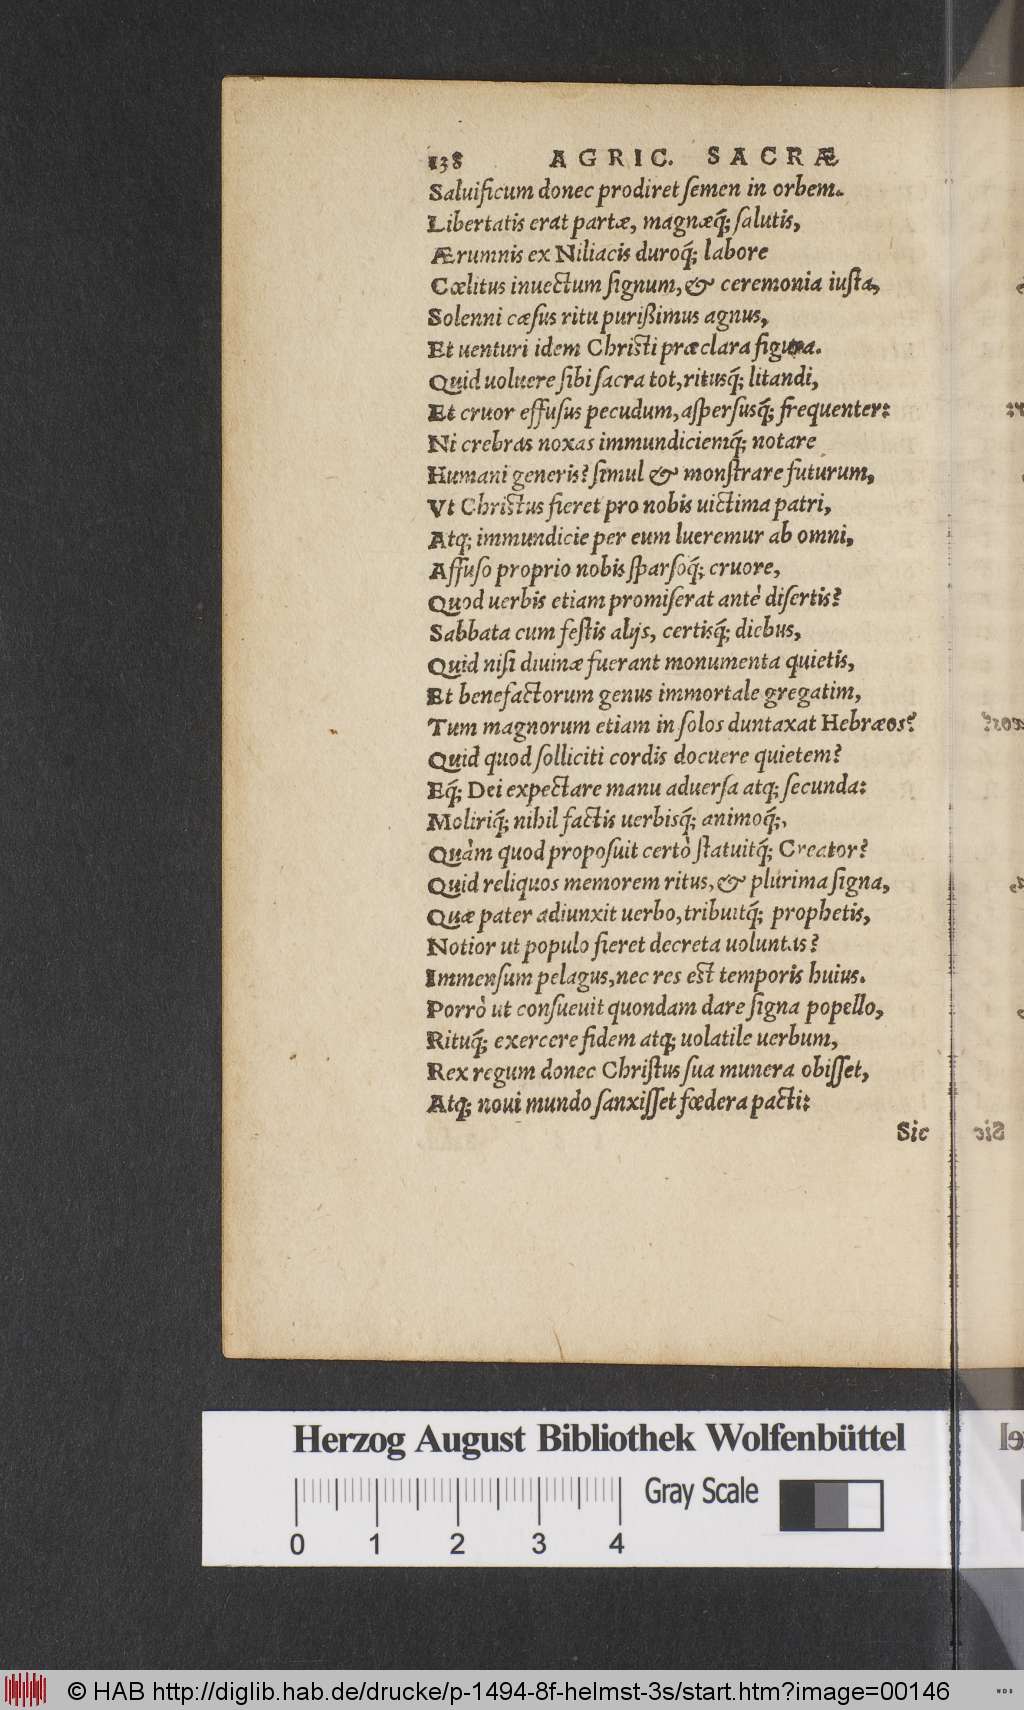 138 AGRIC. SACRÆ
Saluificum donec prodiret ſemen in orbem.
Libertatis erat partæ, magnæq́; ſalutis,
Ærumnis ex Niliacis duroq́; labore
Cœlitus inuectum ſignum, & ceremonia iuſta,
Solenni cæſus ritu purißimus agnus,
Et uenturi idem Chriſti præclara figura.
Quid uoluere ſibi ſacra tot, ritusq́; litandi,
Et cruor effuſus pecudum, aſperſusq́; frequenter:
Ni crebras noxas immundiciemq́; notare
Humani generis? ſimul & monſtrare futurum,
Vt Chriſtus fieret pro nobis uictima patri,
Atq; immundicie per eum lueremur ab omni,
Affuſo proprio nobis ſparſoq́; cruore,
Quod uerbis etiam promiſerat antè diſertis?
Sabbata cum feſtis alijs, certisq́; diebus,
Quid niſi diuinæ fuerant monumenta quietis,
Et benefactorum genus immortale gregatim,
Tum magnorum etiam in ſolos duntaxat Hebræos?
Quid quod ſolliciti cordis docuere quietem?
Eq́; Dei expectare manu aduerſa atq; ſecunda:
Moliriq́; nihil factis uerbisq́; animoq́;,
Quàm quod propoſuit certò ſtatuitq́; Creator?
Quid reliquos memorem ritus, & plurima ſigna,
Quæ pater adiunxit uerbo, tribuitq́; prophetis,
Notior ut populo fieret decreta uoluntas?
Immenſum pelagus, nec res eſt temporis huius.
Porrò ut conſueuit quondam dare ſigna popello,
Rituq́; exercere fidem atq; uolatile uerbum,
Rex regum donec Chriſtus ſua munera obiſſet,
Atq; noui mundo ſanxiſſet fœdera pacti:
Sic
Herzog August Bibliothek Wolfenbüttel
Gray Scale
0 1 2 3 4
© HAB http://diglib.hab.de/drucke/p-1494-8f-helmst-3s/start.htm?image=00146